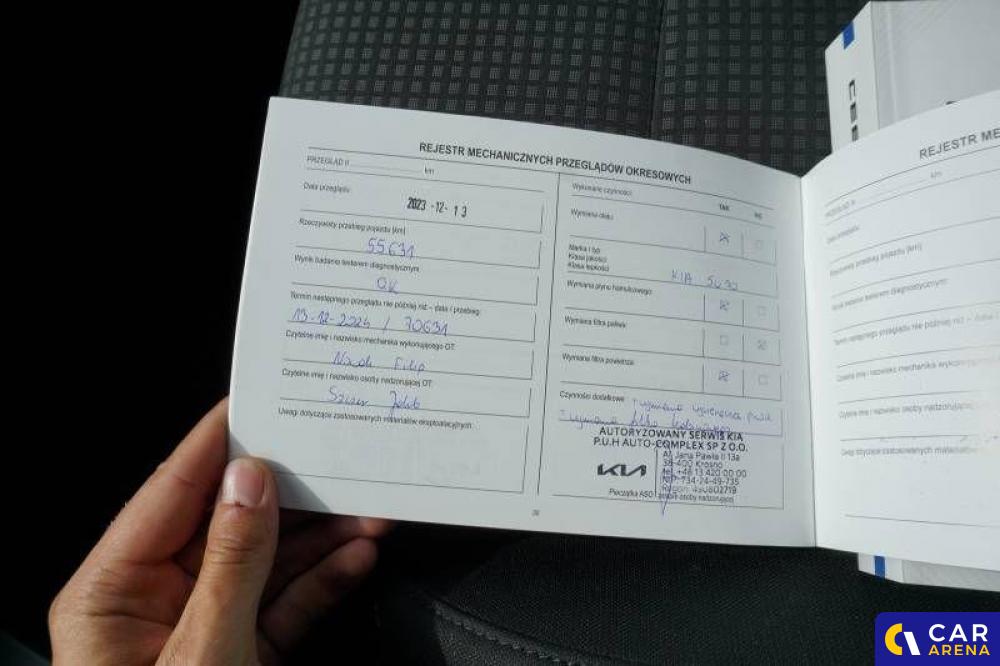 REJESTR MECHANICZNYCH PRZEGLĄDÓW OKRESOWYCH
PRZEGLĄD II km
Data przeglądu:
2023 -12- 13
Rzeczywisty przebieg pojazdu [km]
55631
Wynik badania testerem diagnostycznym:
OK
Termin następnego przeglądu nie później niż – data i przebieg:
13-12-2024 / 70631
Czytelne imię i nazwisko mechanika wykonującego OT:
Filip
Czytelne imię i nazwisko osoby nadzorującej OT:
Uwagi dotyczące zastosowanych materiałów eksploatacyjnych:
Wykonane czynności:
TAK NIE
Wymiana oleju:
Marka i typ
Klasa jakości
Klasa lepkości
KIA 5W30
Wymiana płynu hamulcowego:
Wymiana filtra paliwa:
Wymiana filtra powietrza:
Czynności dodatkowe
wymiana
wymiana filtra
AUTORYZOWANY SERWIS KIA
P.U.H AUTO-COMPLEX SP Z O.O.
KIA
Al. Jana Pawła II 13a
38-400 Krosno
tel. +48 13 420 00 00
NIP: 734-24-49-735
Regon: 490802719
Pieczątka ASO i podpis osoby nadzorującej
REJESTR ME
km
Rzeczywisty przebieg pojazdu [km]
testerem diagnostycznym:
Termin następnego przeglądu nie później niż – data i
Czytelne imię i nazwisko mechanika
Czytelne imię i nazwisko osoby nadzorującej
Uwagi dotyczące zastosowanych materiałów
CAR
ARENA